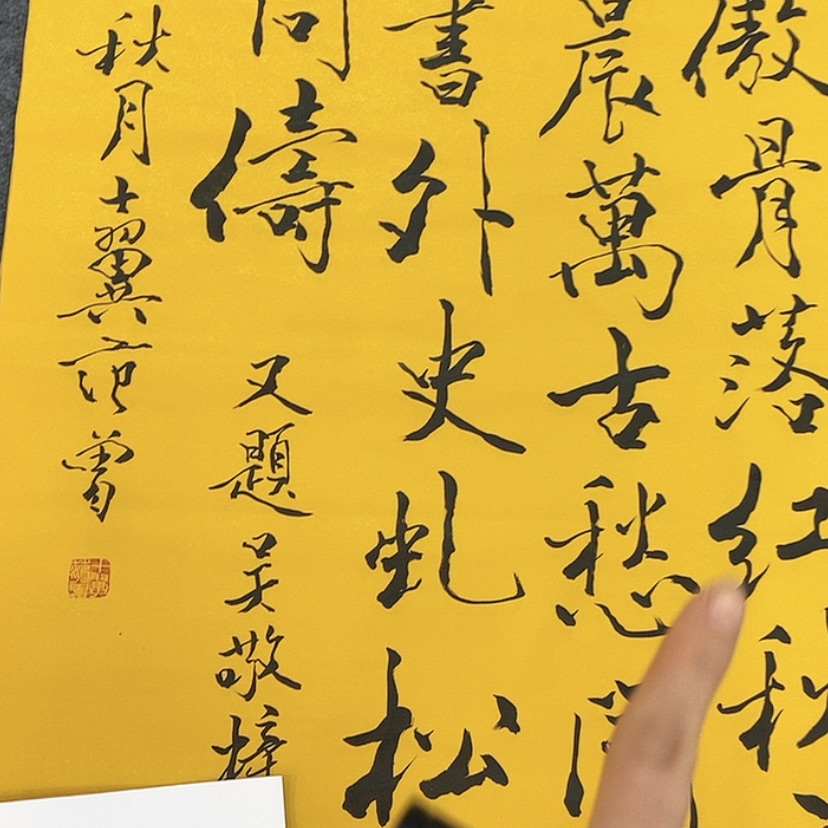 傲骨落紅秋
晨萬古愁
書外史虬松
儔
又題吴敬梓
秋月十翼范曾